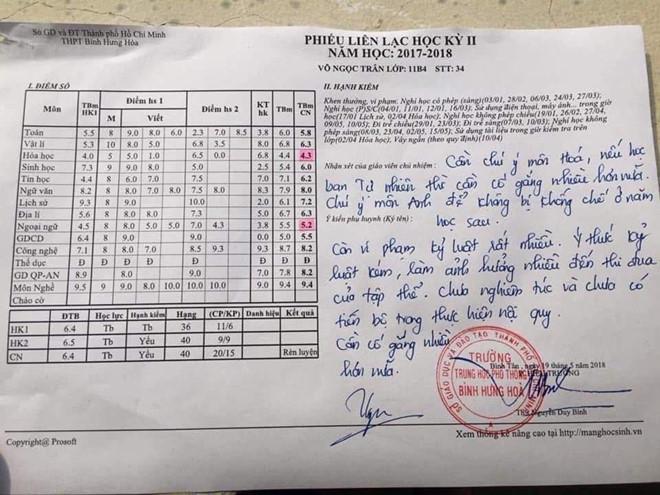 Sở GD và ĐT Thành phố Hồ Chí Minh
THPT Bình Hưng Hòa
PHIẾU LIÊN LẠC HỌC KỲ II
NĂM HỌC: 2017-2018
VÕ NGỌC TRÂN LỚP: 11B4 STT: 34
I. ĐIỂM SỐ
Môn TBm HK1 Điểm hs 1 Điểm hs 2 KT hk TBm TBm CN
M Viết
Toán 5.5 8 9.0 8.0 6.0 2.3 7.0 8.5 3.8 6.0 5.8
Vật lí 5.3 10 8.0 5.0 6.8 3.5 8.0 6.8 6.3
Hóa học 4.0 5 5.0 1.0 6.5 0.0 6.8 4.4 4.3
Sinh học 7.3 9 9.0 8.0 5.0 2.5 5.4 6.0
Tin học 4.4 8 6.0 7.5 7.5 7.0 7.1 6.2
Ngữ văn 8.2 8 8.0 7.0 8.0 7.5 8.0 8.3 7.9 8.0
Lịch sử 9.3 8 9.0 10.0 2.0 6.1 7.2
Địa lí 5.6 8 8.0 8.0 7.3 5.0 6.7 6.3
Ngoại ngữ 4.5 8 8.0 5.0 5.0 7.0 4.3 3.8 5.5 5.2
GDCD 6.4 8 9.0 9.0 0.0 5.0 5.5
Công nghệ 7.1 8 8.0 7.0 8.5 9.3 9.3 8.7 8.2
Thể dục Đ Đ Đ Đ Đ Đ Đ
GD QP-AN 8.9 8.0 9.0 7.0 7.8 8.2
Môn Nghề 9.5 9 9.0 8.0 10.0 10.0 10.0 9.0 9.4 9.4
Chào cờ
ĐTB Học lực Hạnh kiểm Hạng (CP/KP) Danh hiệu Kết quả
HK1 6.4 Tb Tb 36 11/6
HK2 6.5 Tb Yếu 40 9/9
CN 6.4 Tb Yếu 40 20/15 Rèn luyện
II. HẠNH KIỂM
Khen thưởng, vi phạm: Nghỉ học có phép (sáng)(03/01, 28/02, 06/03, 24/03, 27/03);
Nghỉ học (P)S/C(04/01, 11/01, 12/01, 16/03); Sử dụng điện thoại, máy ảnh... trong giờ
học(17/01 Lịch sử, 02/04 Hóa học); Nghỉ học không phép chiều(19/01, 26/02, 27/04,
09/05, 10/05); Đi trễ chiều(29/01, 23/03); Đi trễ sáng(07/03, 10/03); Nghỉ học không
phép sáng(08/03, 23/04, 02/05, 15/05); Sử dụng tài liệu trong giờ kiểm tra trên
lớp(02/04 Hóa học); Váy ngắn (theo quy định)(10/04)
Nhận xét của giáo viên chủ nhiệm: Cần chú ý môn Hoá, nếu học
ban Tự nhiên thì cần cố gắng nhiều hơn nữa.
Chú ý môn Anh để không bị khống chế ở năm
học sau.
Ý kiến phụ huynh (Ký tên):
Còn vi phạm kỷ luật rất nhiều. Ý thức kỷ
luật kém, làm ảnh hưởng nhiều đến thi đua
của tập thể. Chưa nghiêm túc và chưa có
tiến bộ trong thực hiện nội quy.
Cần cố gắng nhiều
hơn nữa.
Bình Tân, ngày 19 tháng 5 năm 2018
SỞ GIÁO DỤC VÀ ĐÀO TẠO THÀNH PHỐ
TRƯỜNG
TRUNG HỌC PHỔ THÔNG
BÌNH HƯNG HOÀ
Nguyễn Duy Bình
Copyright@ Prosoft
Xem thống kê nâng cao tại http://manghocsinh.vn